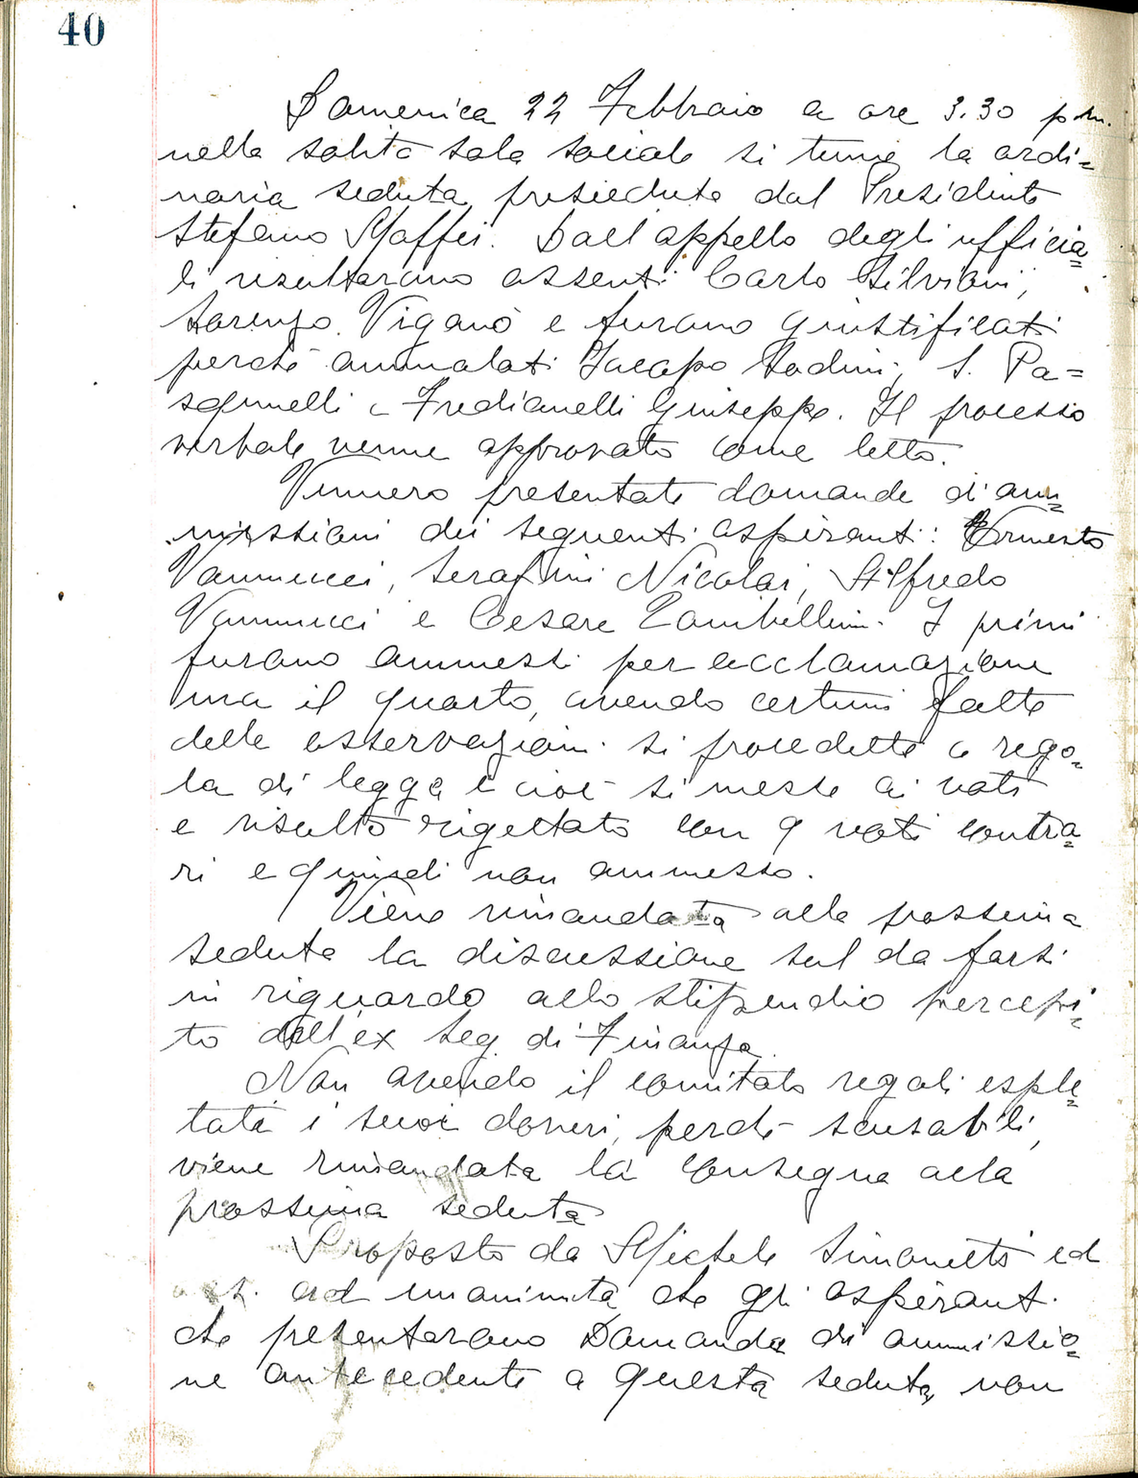 40
Domenica 22 Febbraio a ore 3.30 pm.
nella solita sala sociale si tenne la ordi=
naria seduta presieduta dal Presidente
Stefano Maffei. Dall'appello degli ufficia=
li risultarono assenti Carlo Silviani,
Lorenzo Viganò e furono giustificati
perchè ammalati Jacapo Lodini, S. Pa=
squinelli e Fredianelli Giuseppe. Il processo
verbale venne approvato come letto.
Vennero presentate domande di am=
missioni dei seguenti aspiranti: Ernesto
Vannucci, Serafini Nicolai, Alfredo
Vannucci e Cesare Zambellini. I primi
furono ammessi per acclamazione
ma il quarto, avendo certuni fatte
delle osservazioni si procedette a rego=
la di legge e cioè si messe ai voti
e risultò rigettato con 9 voti contra=
ri e quindi non ammesso.
Viene rimandata alla prossima
seduta la discussione sul da farsi
in riguardo allo stipendio percepi=
to dall'ex Seg. di Finanza.
Non avendo il comitato regali esple=
tati i suoi doveri, perchè scusabili,
viene rimandata la consegna alla
prossima seduta
Proposto da Michele Simonetti ed
ad unanimità che gli aspiranti
che presentarono Domanda di ammissio=
ne antecedente a questa seduta, non